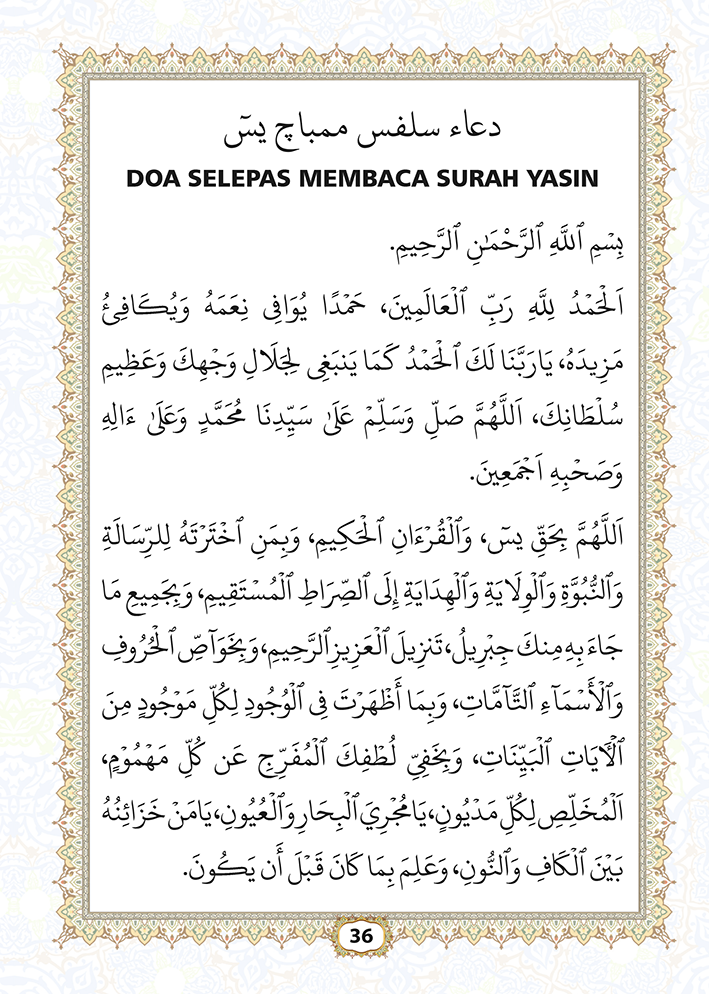 دعاء سلفس ممباچ يسٓ
DOA SELEPAS MEMBACA SURAH YASIN
بِسْمِ ٱللَّهِ ٱلرَّحْمَٰنِ ٱلرَّحِيمِ.
اَلْحَمْدُ لِلَّهِ رَبِّ ٱلْعَالَمِينَ، حَمْدًا يُوَافِى نِعَمَهُ وَيُكَافِئُ
مَزِيدَهُ، يَارَبَّنَا لَكَ ٱلْحَمْدُ كَمَا يَنبَغِى لِجَلَالِ وَجْهِكَ وَعَظِيمِ
سُلْطَانِكَ، اَللَّهُمَّ صَلِّ وَسَلِّمْ عَلَىٰ سَيِّدِنَا مُحَمَّدٍ وَعَلَىٰ ءَالِهِ
وَصَحْبِهِ اَجْمَعِينَ.
اَللَّهُمَّ بِحَقِّ يسٓ، وَٱلْقُرْءَانِ ٱلْحَكِيمِ، وَبِمَنِ ٱخْتَرْتَهُ لِلرِّسَالَةِ
وَٱلنُّبُوَّةِ وَٱلْوِلَايَةِ وَٱلْهِدَايَةِ إِلَى ٱلصِّرَاطِ ٱلْمُسْتَقِيمِ، وَبِجَمِيعِ مَا
جَاءَ بِهِ مِنكَ جِبْرِيلُ، تَنزِيلَ ٱلْعَزِيزِ ٱلرَّحِيمِ، وَبِخَوَآصِّ ٱلْحُرُوفِ
وَٱلْأَسْمَآءِ ٱلتَّآمَّاتِ، وَبِمَا أَظْهَرْتَ فِى ٱلْوُجُودِ لِكُلِّ مَوْجُودٍ مِنَ
ٱلْآيَاتِ ٱلْبَيِّنَاتِ، وَبِخَفِيِّ لُطْفِكَ ٱلْمُفَرِّجِ عَن كُلِّ مَهْمُوْمٍ،
اَلْمُخَلِّصِ لِكُلِّ مَدْيُونٍ، يَا مُجْرِيَ ٱلْبِحَارِ وَٱلْعُيُونِ، يَامَنْ خَزَائِنُهُ
بَيْنَ ٱلْكَافِ وَٱلنُّونِ، وَعَلِمَ بِمَا كَانَ قَبْلَ أَن يَكُونَ.
36